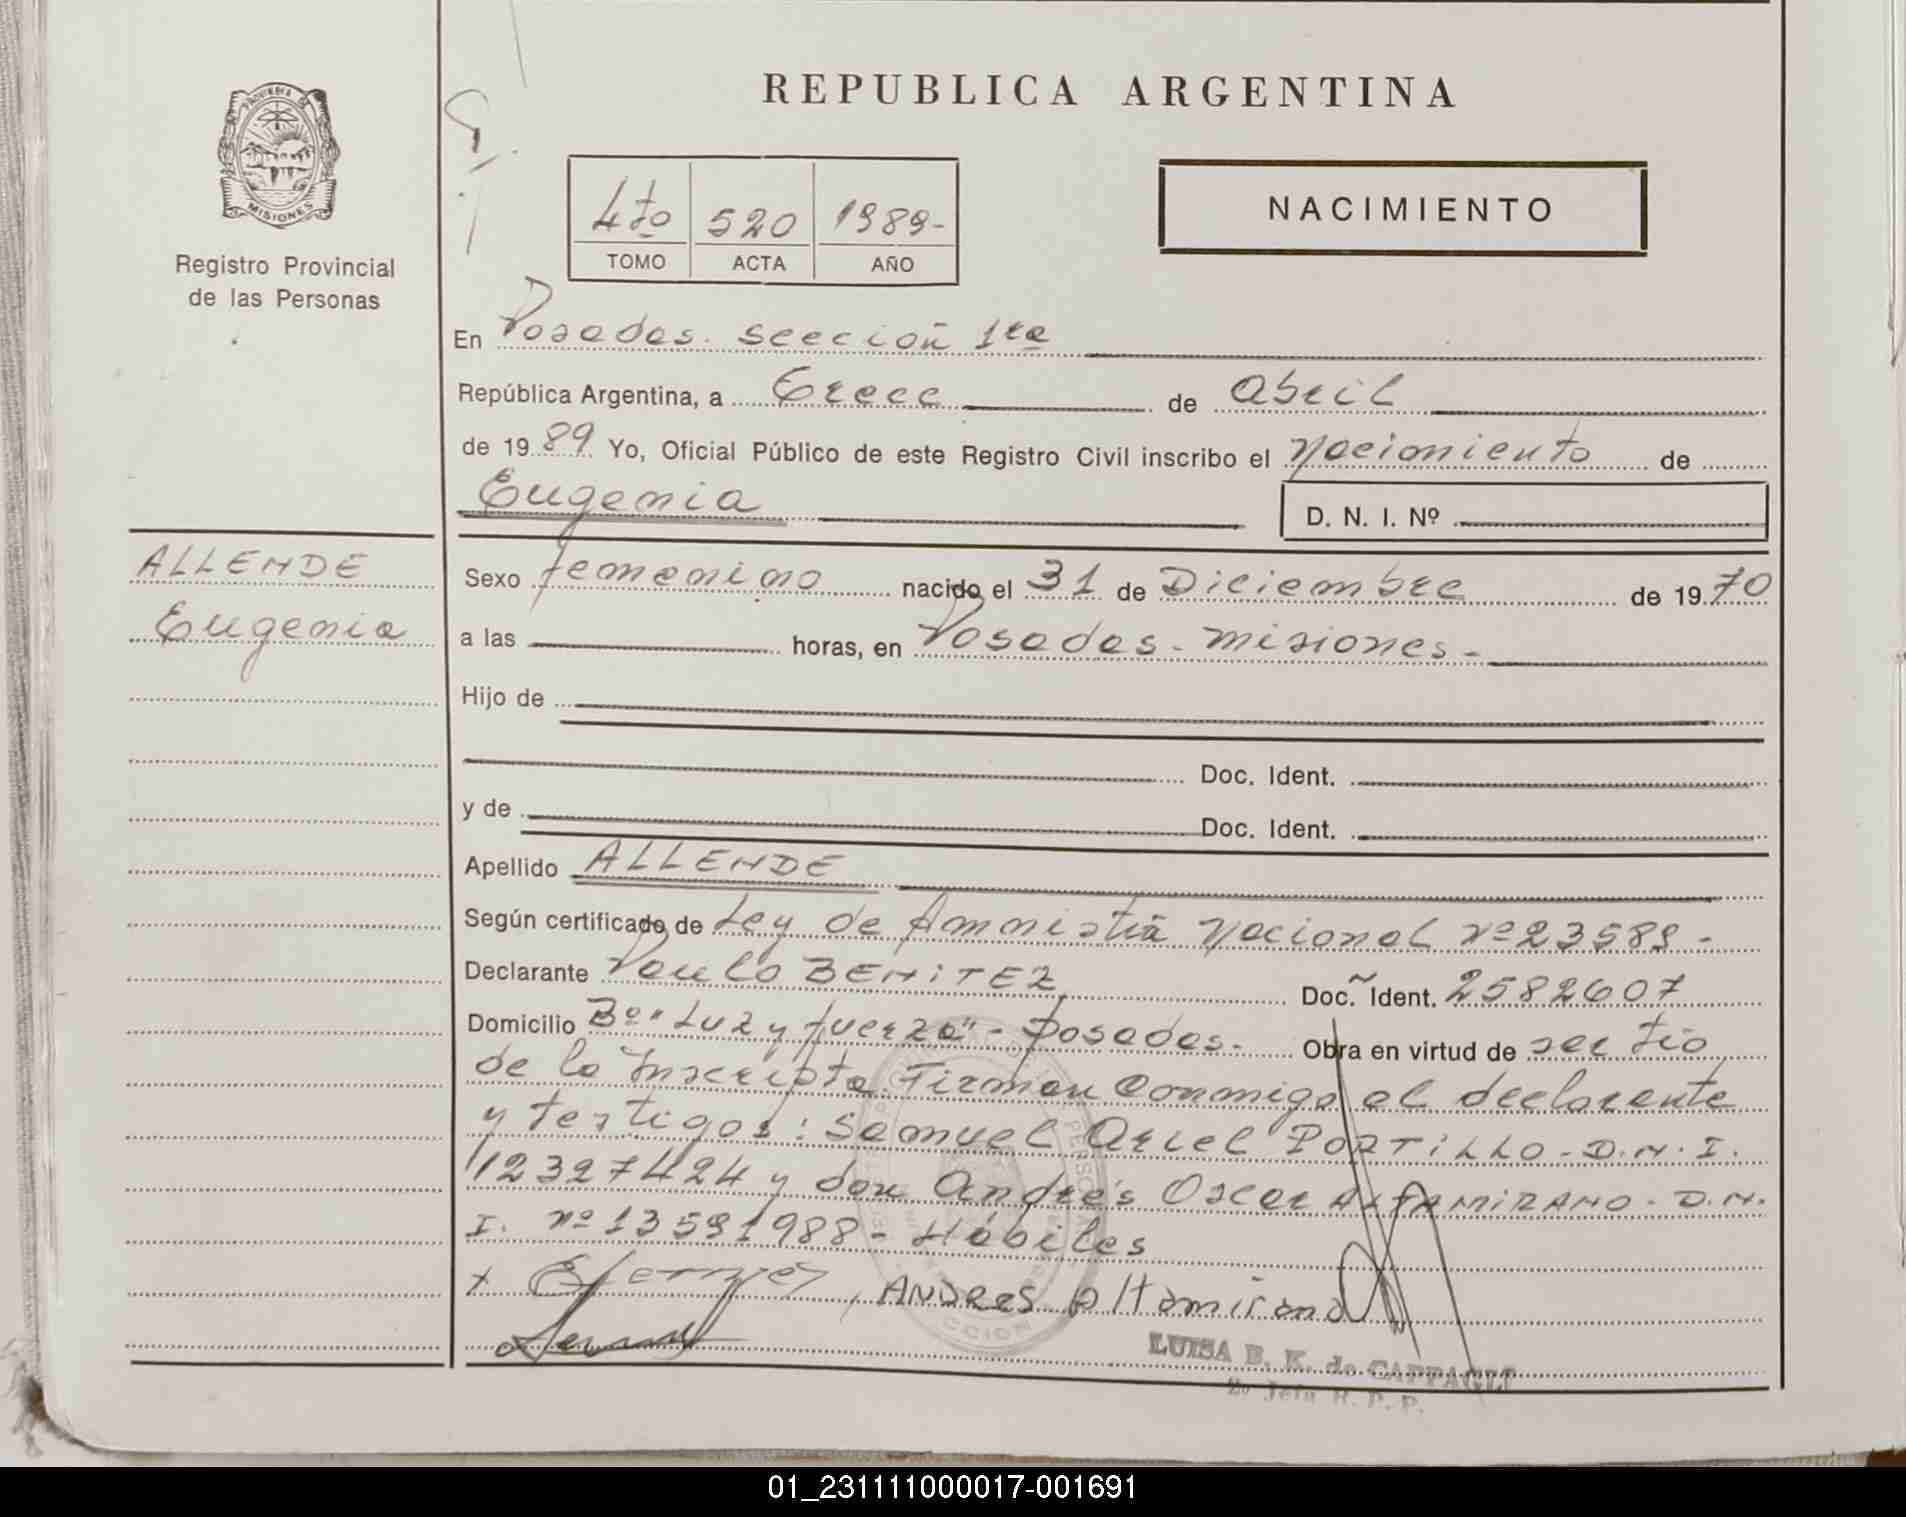 REPUBLICA ARGENTINA
PROVINCIA DE
MISIONES
Registro Provincial
de las Personas
4to 520 1989-
TOMO ACTA AÑO
NACIMIENTO
En Posadas. sección 1ra
República Argentina, a trece de abril
de 1989 Yo, Oficial Público de este Registro Civil inscribo el nacimiento de
Eugenia
D. N. I. Nº
ALLENDE
Eugenia
Sexo femenino nacido el 31 de Diciembre de 1970
a las horas, en Posadas - misiones-
Hijo de
Doc. Ident.
y de Doc. Ident.
Apellido ALLENDE
Según certificado de Ley de Amnistía nacional nº 23589-
Declarante Paulo BENITEZ Doc. Ident. 2582607
Domicilio Bº "Luz y fuerza" - Posadas- Obra en virtud de ser tío
de la Inscripta. Firman Conmigo el declarante
y testigos: Samuel Ariel PORTILLO - D.N.I.
12327424 y don Andrés Oscar ALTAMIRANO - D.N.
I. nº 13591988- Hábiles
ANDRES Altamirano
LUISA B. K. de CAPPAGLI
2º Jefa R. P. P.
01_231111000017-001691